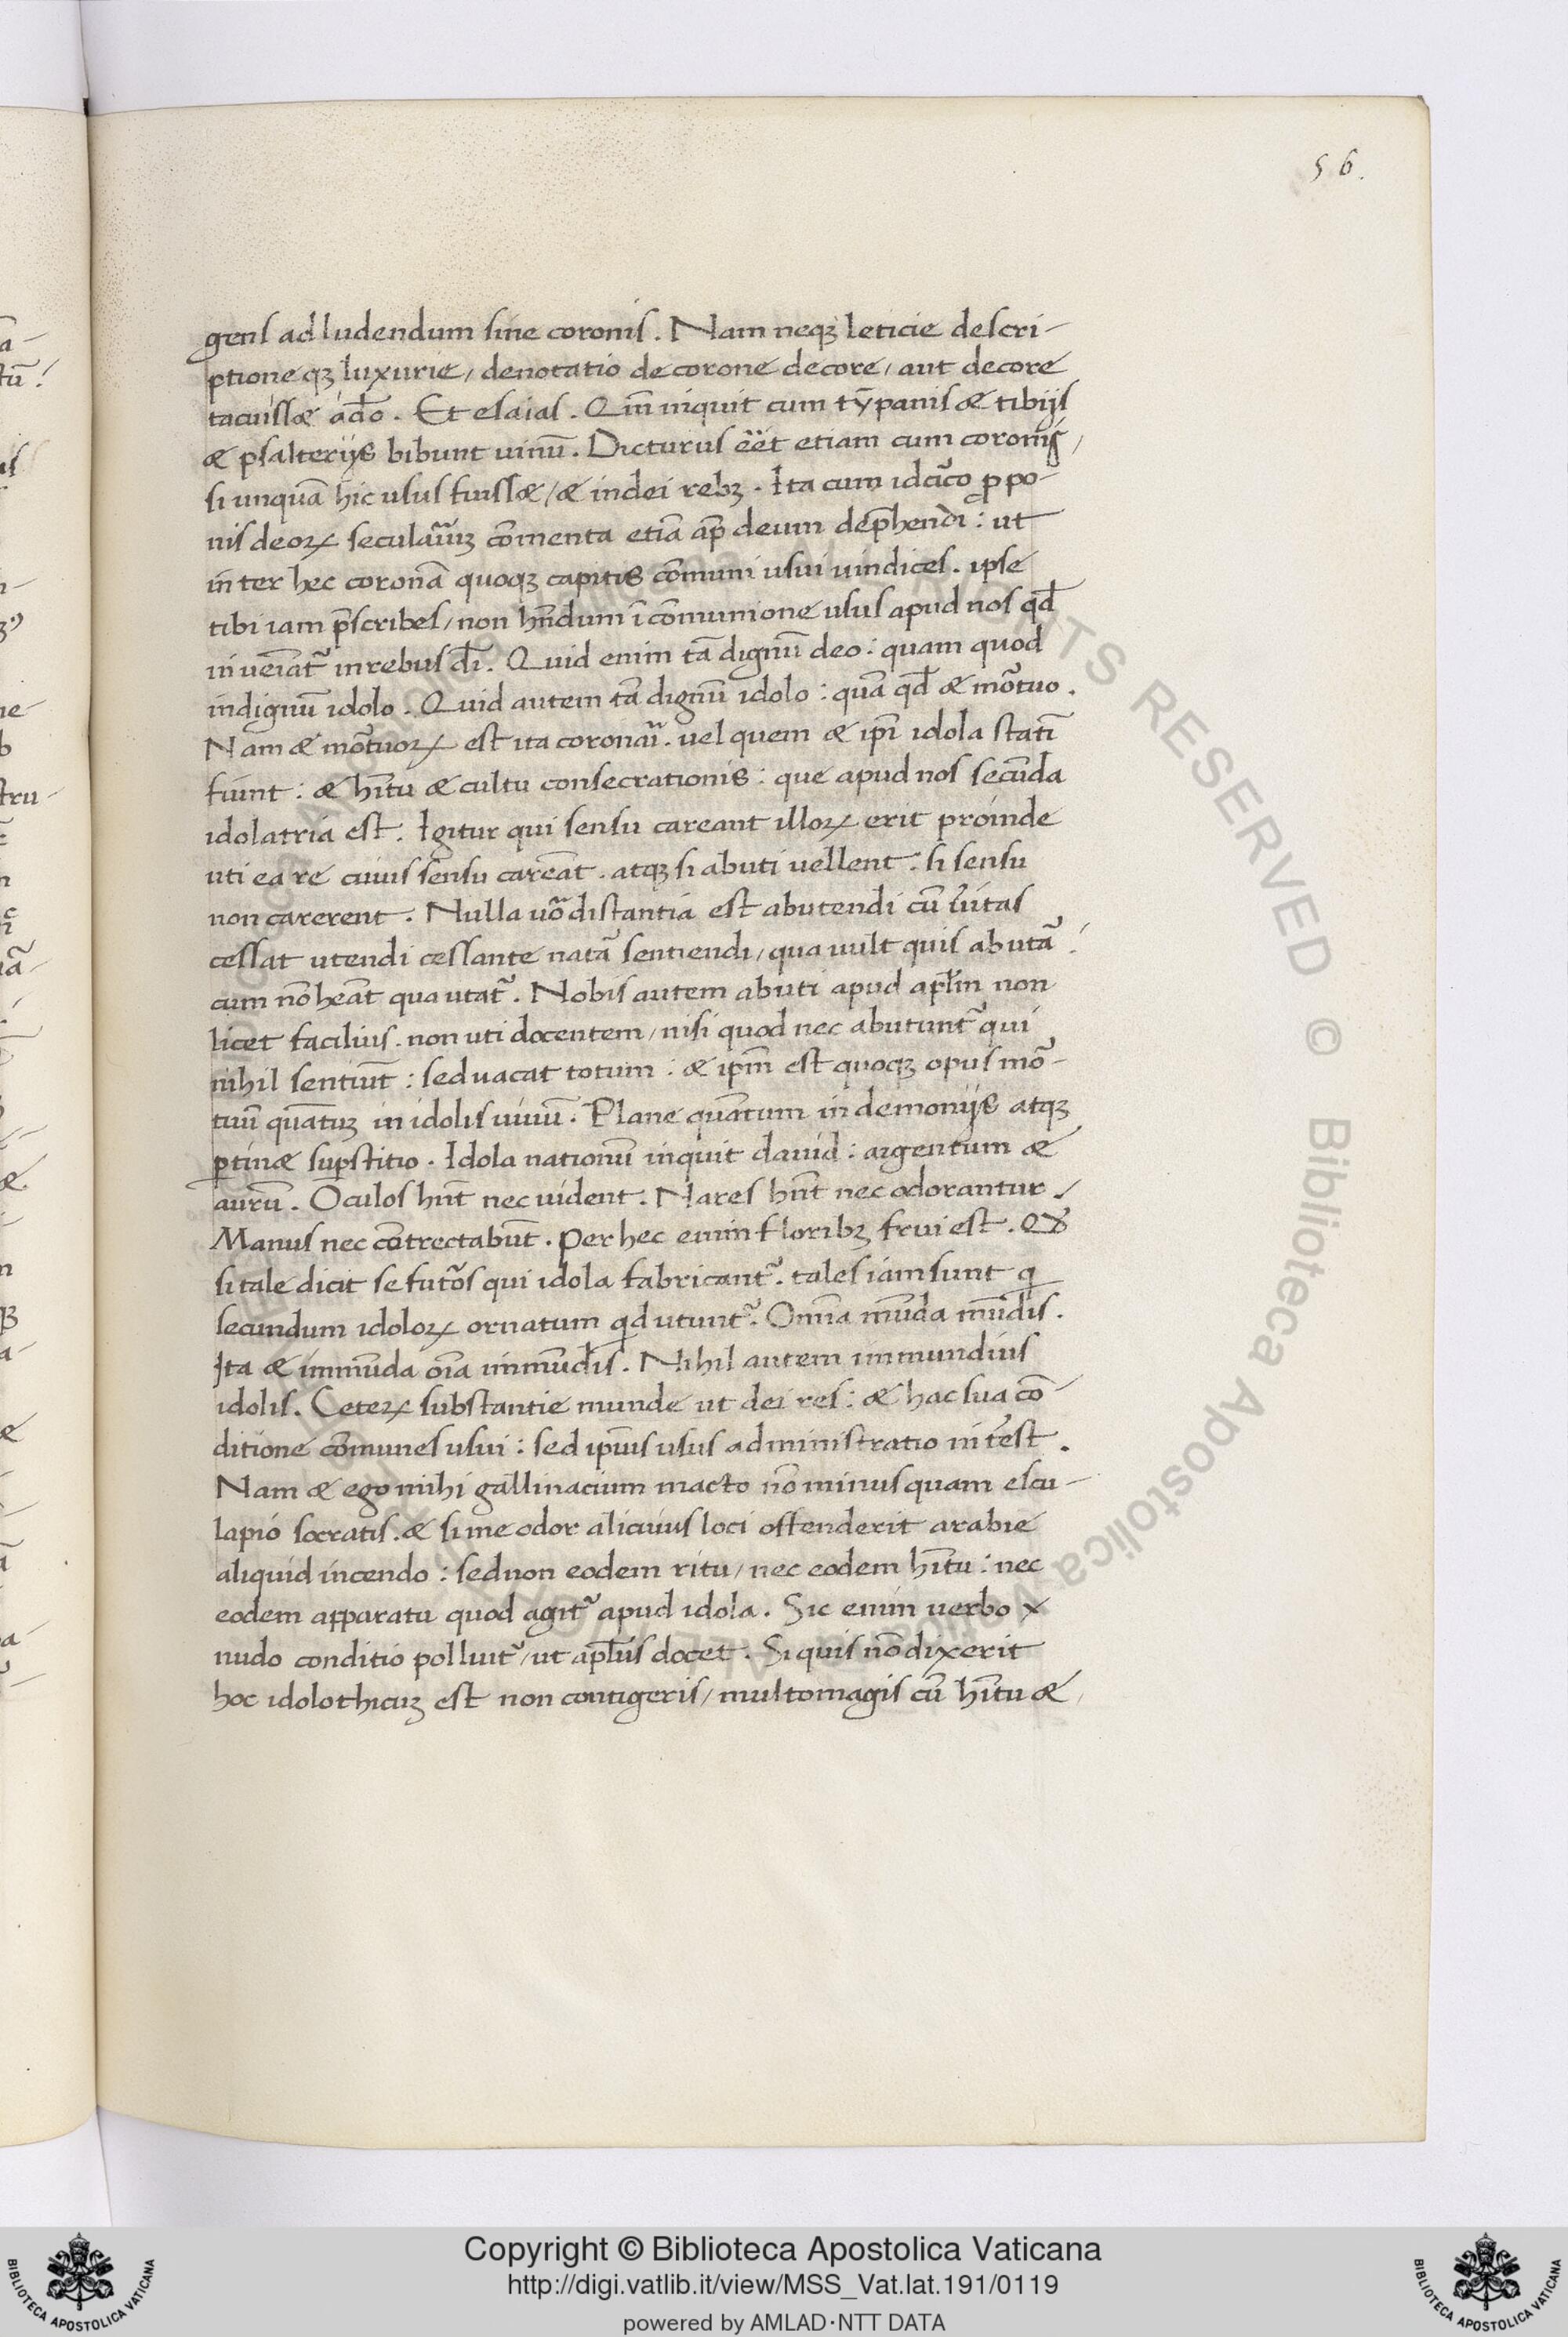 56.
gens ad ludendum sine coronis. Nam neqꝫ leticie descri-
ptione qꝫ luxurie, denotatio de corone decore, aut decore
tacuisset a dō. Et esaias. Qm̄ inquit cum tȳpanis et tibijs
et psalterijs bibunt uinū. Dicturus eēt etiam cum coronis,
si unquā hic usus fuisset, et in dei rebꝫ. Ita cum idcı̄co ꝓpo-
nis deoꝝ secula comenta etiā ap̄ deum dep̄hendi: ut
inter hec coronā quoqꝫ capitis cōmuni usui uindices. ipse
tibi iam p̄scribes, non hn̄dum ı̄ cōmunione usus apud nos qd̄
inueiat᷑ in rebus dı̄. Quid enim tā dignū deo: quam quod
indignū idolo. Quid autem tā dignū idolo: quā qd̄ et mōtuo.
Nam et mōtuoꝝ est ita coronaı̄. uel quem et ipı̄ idola statı̄
fiunt: et hı̄tu et cultu consecrationis: que apud nos secūda
idolatria est. Igitur qui sensu careant illoꝝ erit proinde
uti ea re cuius sensu careāt. atqꝫ si abuti uellent. si sensu
non carerent. Nulla uō distantia est abutendi cū ūitas
cessat utendi cessante natā sentiendi, qua uult quis abutā:
cum nō heāt qua utat᷑. Nobis autem abuti apud apl̄m non
licet facilius. non uti docentem, nisi quod nec abutunt᷑ qui
nihil sentiūt: sed uacat totum: et ipm̄ est quoqꝫ opus mō-
tuū quātuꝫ in idolis uiuū. Plane quāntum in demonijs atqꝫ
ꝑtinet suꝑstitio. Idola nationū inquit dauid: argentum et
aurū. Oculos hn̄t nec uident. Nares hn̄t nec odorantur.
Manus nec cōtrectabūt. Per hec enim floribꝫ frui est. Qꝫ
si tale dicit se futōs qui idola fabricant᷑. tales iam sunt q
secundum idoloꝝ ornatum qd utunt᷑. Omn̄a mūda mūdis.
Ita et immūda oı̄a immūdis. Nihil autem immundius
idolis. Ceteꝝ substantie munde ut dei res: et hac sua cō-
ditione cōmunes usui: sed ipı̄us usus administratio int̄est.
Nam et ego mihi gallinacium macto nō minus quam escu-
lapio socratis. et si me odor alicuius loci offenderit arabie
aliquid incendo: sed non eodem ritu, nec eodem hı̄tu: nec
eodem apparatu quod agit᷑ apud idola. Sic enim uerbo x
nudo conditio polluit᷑, ut apl̄us docet. Si quis nō dixerit
hoc idolothicuꝫ est non contigeris, multomagis cū hı̄tu et,
ALL RIGHTS RESERVED © Biblioteca Apostolica Vaticana
Copyright © Biblioteca Apostolica Vaticana
http://digi.vatlib.it/view/MSS_Vat.lat.191/0119
powered by AMLAD·NTT DATA
BIBLIOTECA APOSTOLICA VATICANA
BIBLIOTECA APOSTOLICA VATICANA